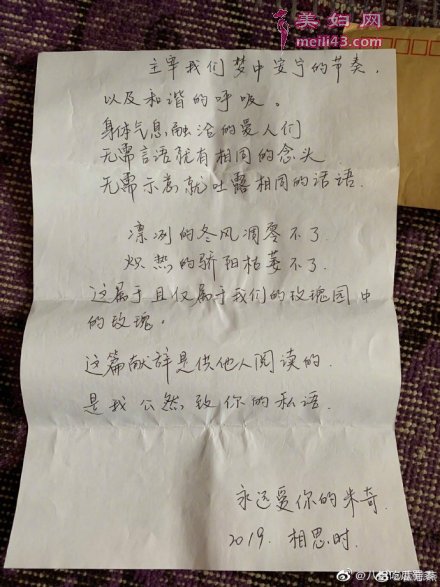 美妇网
meili43.com
主宰我们梦中安宁的节奏.
以及和谐的呼吸。
身体气息融洽的爱人们
无需言语就有相同的念头
无需示意就吐露相同的话语.
凛冽的冬风凋零不了.
炽热的骄阳枯萎不了.
这属于且仅属于我们的玫瑰园中
的玫瑰。
这篇献辞是供他人阅读的.
是我公然致你的私语.
永远爱你的米奇.
2019. 相思时.